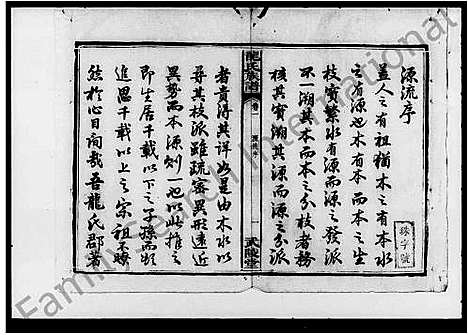 源流序
蓋人之有祖猶木之有本水
之有源也木有本而本之生
枝實繁水有源而源之發派
不一溯其木而本之分枝者務
核其實溯其源而源之分派
龍氏族譜
卷一
源流序
一
武陵堂
者貴得其詳此是由木水以
尋其枝派雖疏密異形遠近
異勢而本源則一也以此推之
即生居千載以下之子孫而欲
追思千載以上之宗祖不瞭
然於心目間哉吾龍氏郡著
珠字號
FamilySearch International